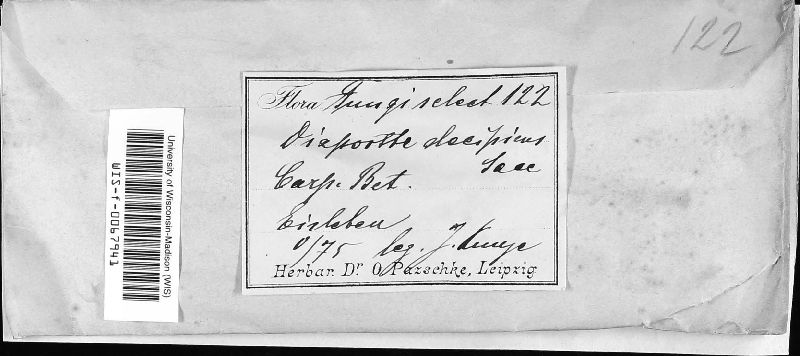 122
Flora Fungi select 122
Diaporthe decipiens
Sacc
Carp. Bet.
Eisleben
0/75 leg. J. Kunze
Herbar. Dr O. Pazschke, Leipzig
University of Wisconsin-Madison (WIS)
WIS-f-0067941